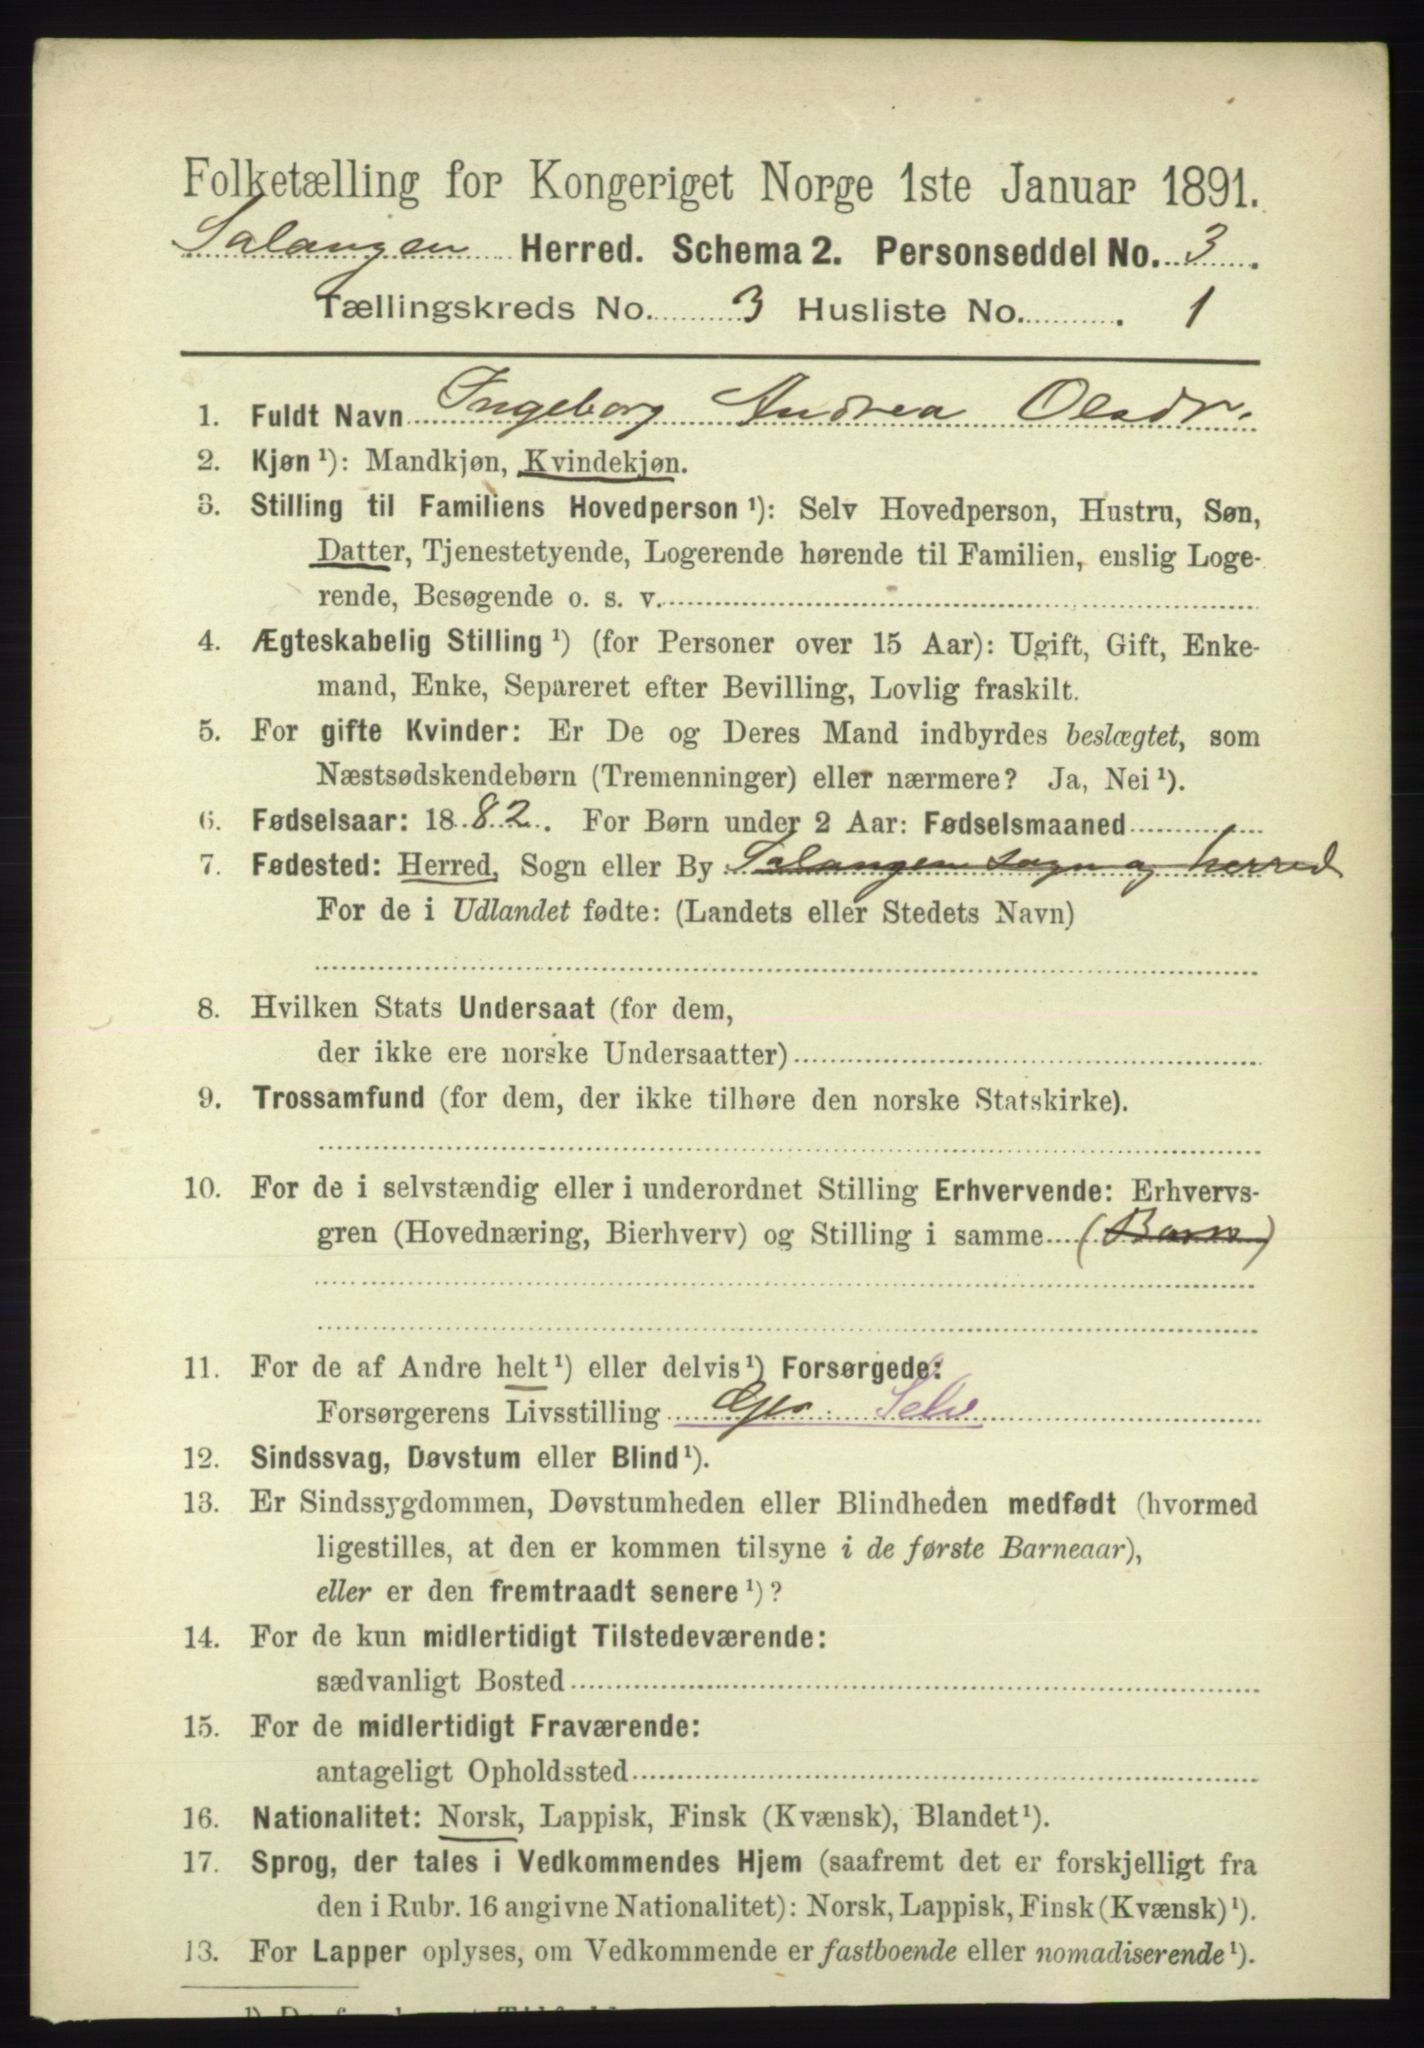 Folketælling for Kongeriget Norge 1ste Januar 1891.
Salangen Herred. Schema 2. Personseddel No. 3.
Tællingskreds No. 3 Husliste No. . 1
1. Fuldt Navn Ingeborg Andrea Olsdr.
2. Kjøn ¹): Mandkjøn, Kvindekjøn.
3. Stilling til Familiens Hovedperson ¹): Selv Hovedperson, Hustru, Søn,
Datter, Tjenestetyende, Logerende hørende til Familien, enslig Loge-
rende, Besøgende o. s. v.
4. Ægteskabelig Stilling ¹) (for Personer over 15 Aar): Ugift, Gift, Enke-
mand, Enke, Separeret efter Bevilling, Lovlig fraskilt.
5. For gifte Kvinder: Er De og Deres Mand indbyrdes beslægtet, som
Næstsødskendebørn (Tremenninger) eller nærmere? Ja, Nei ¹).
6. Fødselsaar: 1882. For Børn under 2 Aar: Fødselsmaaned
7. Fødested: Herred, Sogn eller By Salangen sogn og herred
For de i Udlandet fødte: (Landets eller Stedets Navn)
8. Hvilken Stats Undersaat (for dem,
der ikke ere norske Undersaatter)
9. Trossamfund (for dem, der ikke tilhøre den norske Statskirke).
10. For de i selvstændig eller i underordnet Stilling Erhvervende: Erhvervs-
gren (Hovednæring, Bierhverv) og Stilling i samme (Barn)
11. For de af Andre helt ¹) eller delvis ¹) Forsørgede:
Forsørgerens Livsstilling Gjr. Selv
12. Sindssvag, Døvstum eller Blind ¹).
13. Er Sindssygdommen, Døvstumheden eller Blindheden medfødt (hvormed
ligestilles, at den er kommen tilsyne i de første Barneaar),
eller er den fremtraadt senere ¹)?
14. For de kun midlertidigt Tilstedeværende:
sædvanligt Bosted
15. For de midlertidigt Fraværende:
antageligt Opholdssted
16. Nationalitet: Norsk, Lappisk, Finsk (Kvænsk), Blandet ¹).
17. Sprog, der tales i Vedkommendes Hjem (saafremt det er forskjelligt fra
den i Rubr. 16 angivne Nationalitet): Norsk, Lappisk, Finsk (Kvænsk) ¹).
13. For Lapper oplyses, om Vedkommende er fastboende eller nomadiserende ¹).